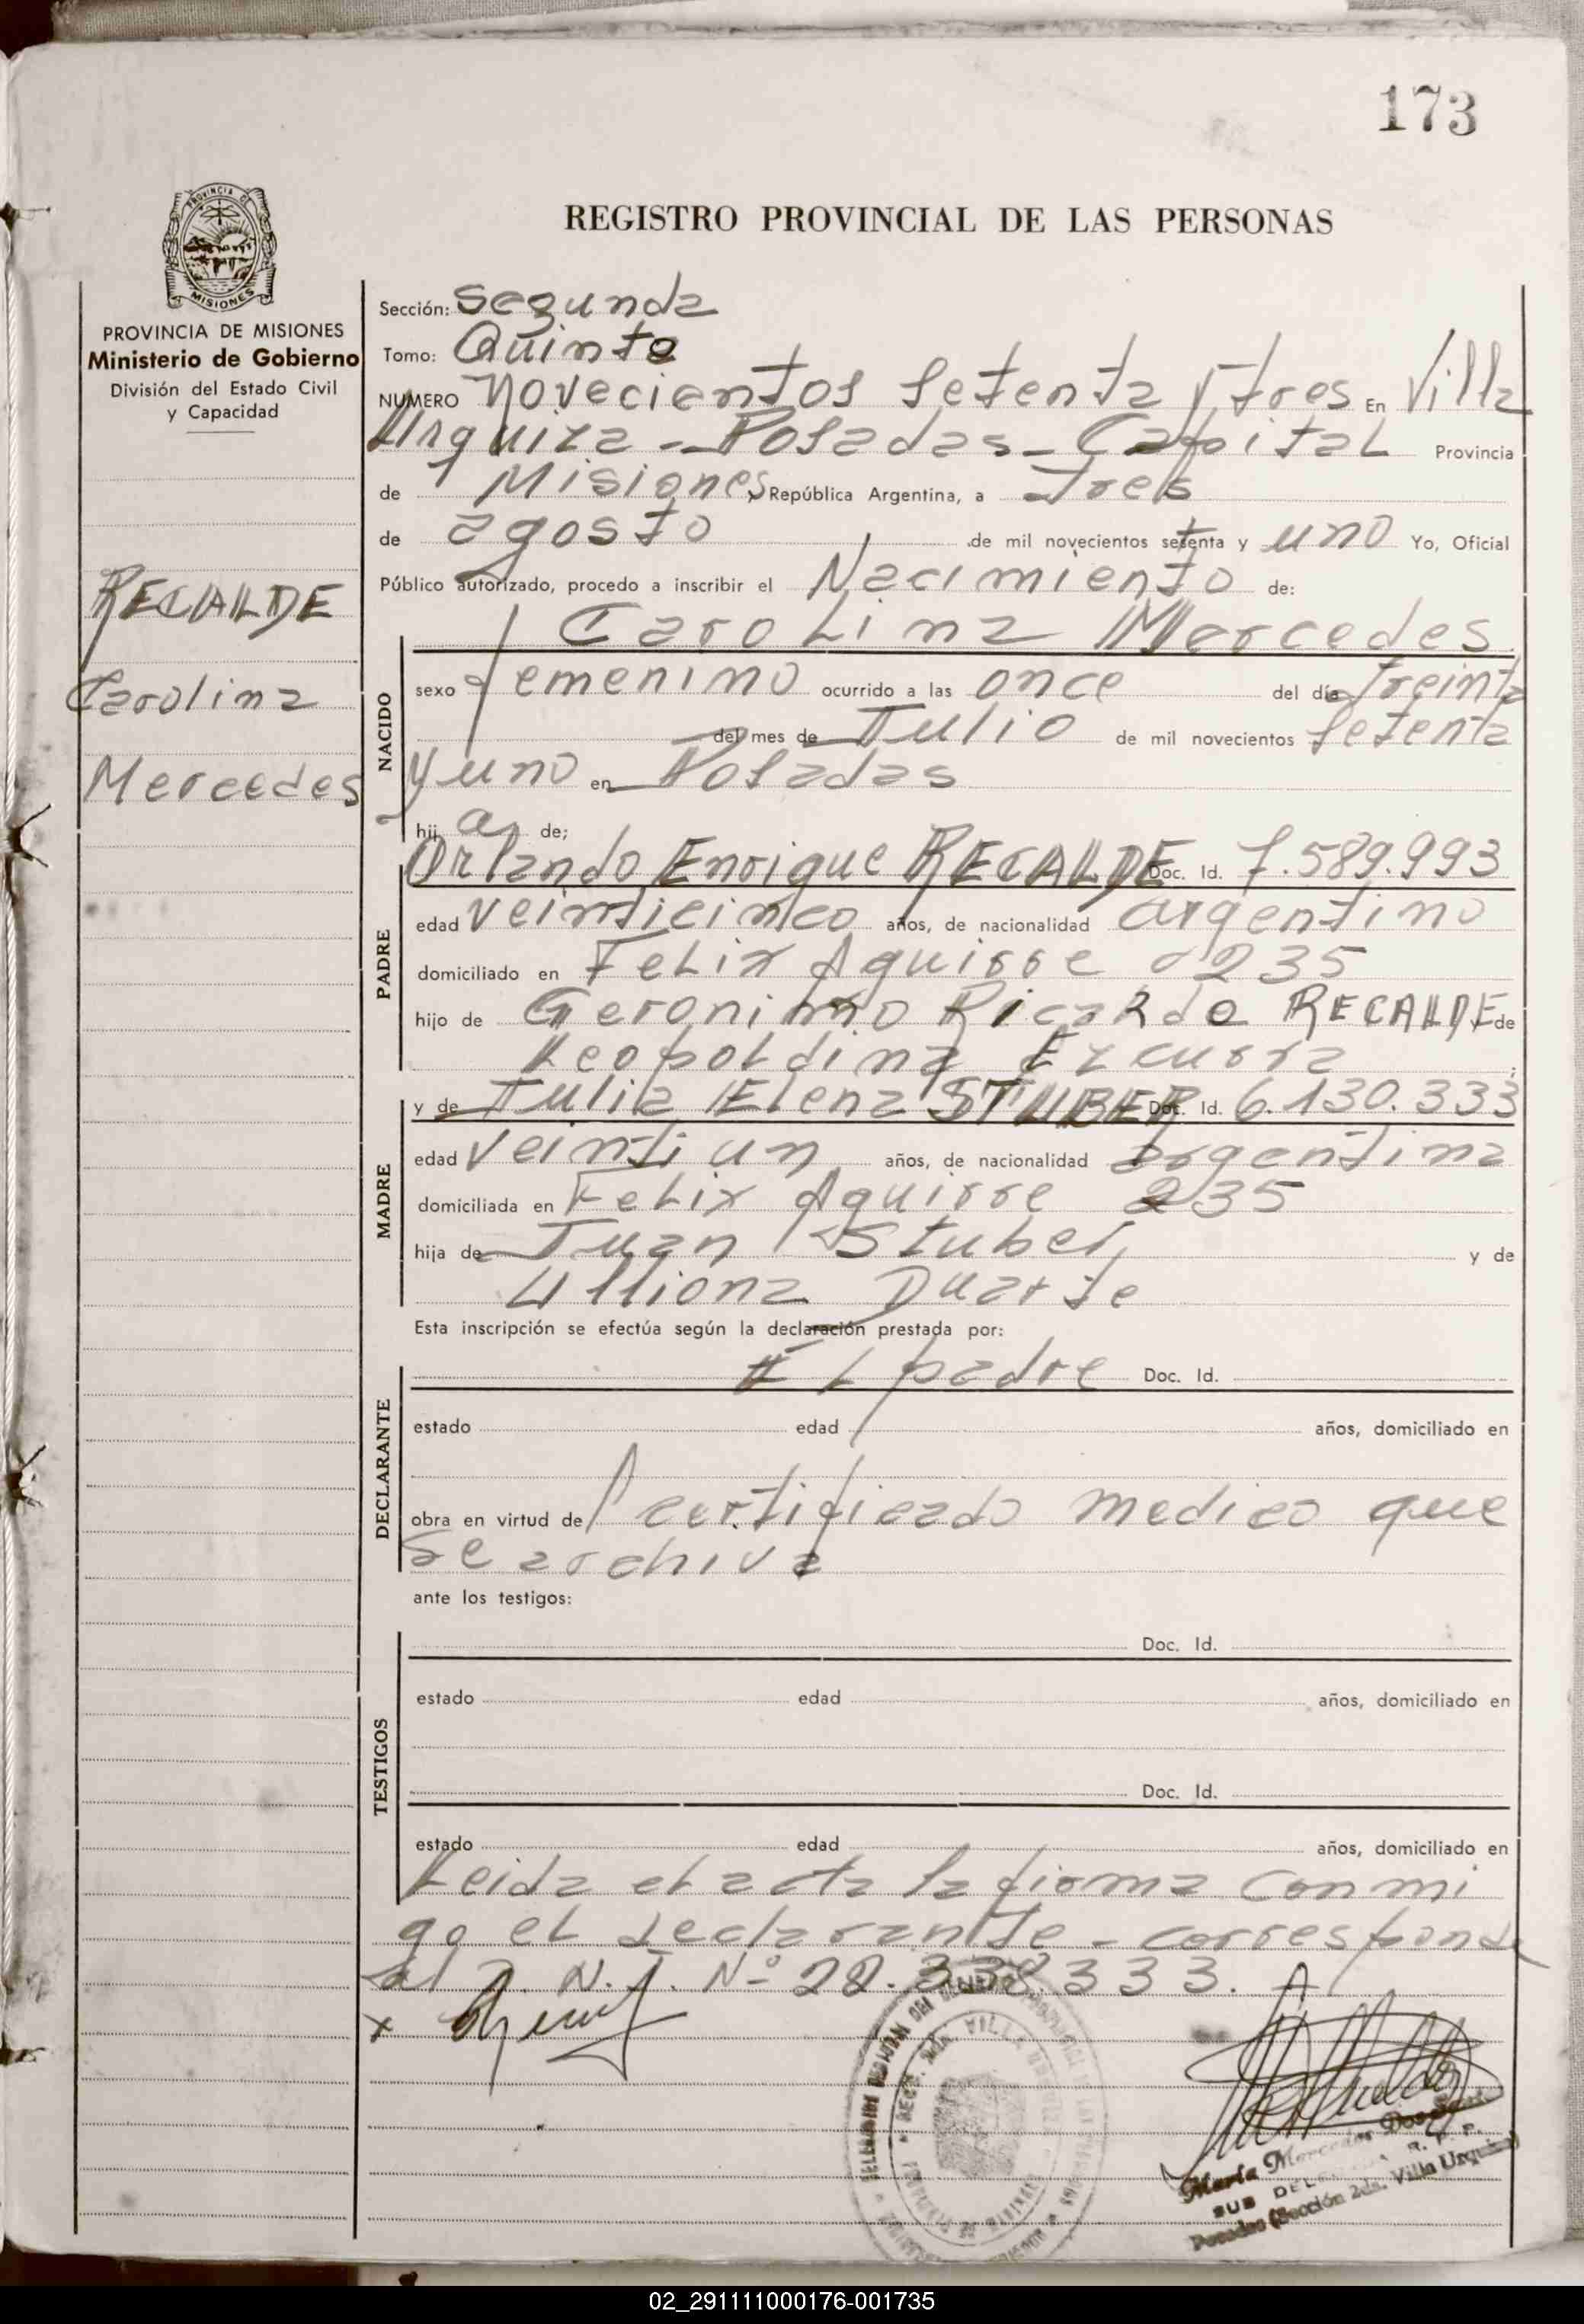 173
REGISTRO PROVINCIAL DE LAS PERSONAS
PROVINCIA DE MISIONES
Ministerio de Gobierno
División del Estado Civil
y Capacidad
RECALDE
Carolina
Mercedes
Sección: Segunda
Tomo: Quinto
NUMERO Novecientos setenta y tres En Villa
Urquiza - Posadas - Capital Provincia
de Misiones República Argentina, a tres
de agosto de mil novecientos setenta y uno Yo, Oficial
Público autorizado, procedo a inscribir el Nacimiento de:
Carolina Mercedes
NACIDO
sexo femenino ocurrido a las once del día treinta
del mes de Julio de mil novecientos setenta
y uno en Posadas
hij a de;
Orlando Enrique RECALDE Doc. Id. 7.589.993
PADRE
edad veinticinco años, de nacionalidad argentino
domiciliado en Felix Aguirre 235
hijo de Geronimo Ricardo RECALDE y de
Leopoldina Ezcurra
y de Julia Elena STUBER Doc. Id. 6.130.333
MADRE
edad veintiun años, de nacionalidad argentina
domiciliada en Felix Aguirre 235
hija de Juan Stuber y de
Doarte
Esta inscripción se efectúa según la declaración prestada por:
El padre Doc. Id.
DECLARANTE
estado edad años, domiciliado en
obra en virtud de certificado medico que
se archiva
ante los testigos:
Doc. Id.
TESTIGOS
estado edad años, domiciliado en
Doc. Id.
estado edad años, domiciliado en
Leida el acta la firma conmi
go el declarante - corresponde
al D.N.I. Nº 22.338.333.
x
María Mercedes Dos Santos
SUB DELEGADA R. P. P.
Posadas (Sección 2da. Villa Urquiza)
02_291111000176-001735